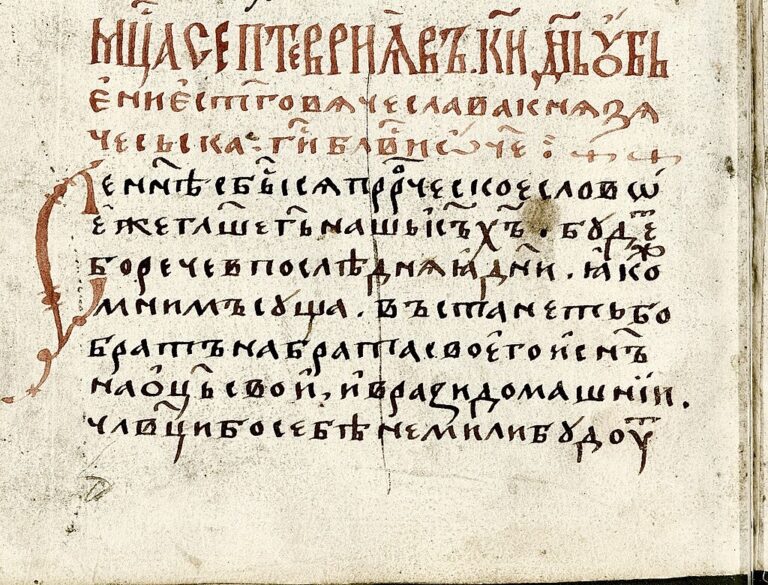 Мⷭ҇ЦА СЕПТЕВРИꙖ ВЪ. К҃И ДН҃Ь ОУБЬ
ЕНИЕ СТ҃ГО ВѦЧЕСЛАВА КНѦЗѦ
ЧЕСЬСКА: Г҃И БЛВ҃И Ѿ҃ЧЕ:
Се нн҃ѣ сбы́сѧ прⷪ҇рческое словѡ
е́же гл҃аше гь҃ нашь і҆с҃ъ х҃ъ. будеⷮ
бо рече в послѣднѧꙗ дн҃и. ꙗкоⷤ
мнимъ суща. въстанеть бо
братъ на брата своего и сн҃ъ
на оц҃ь свои, и врази домашнїи.
члв҃ци бо себѣ не мили будоуⷮ